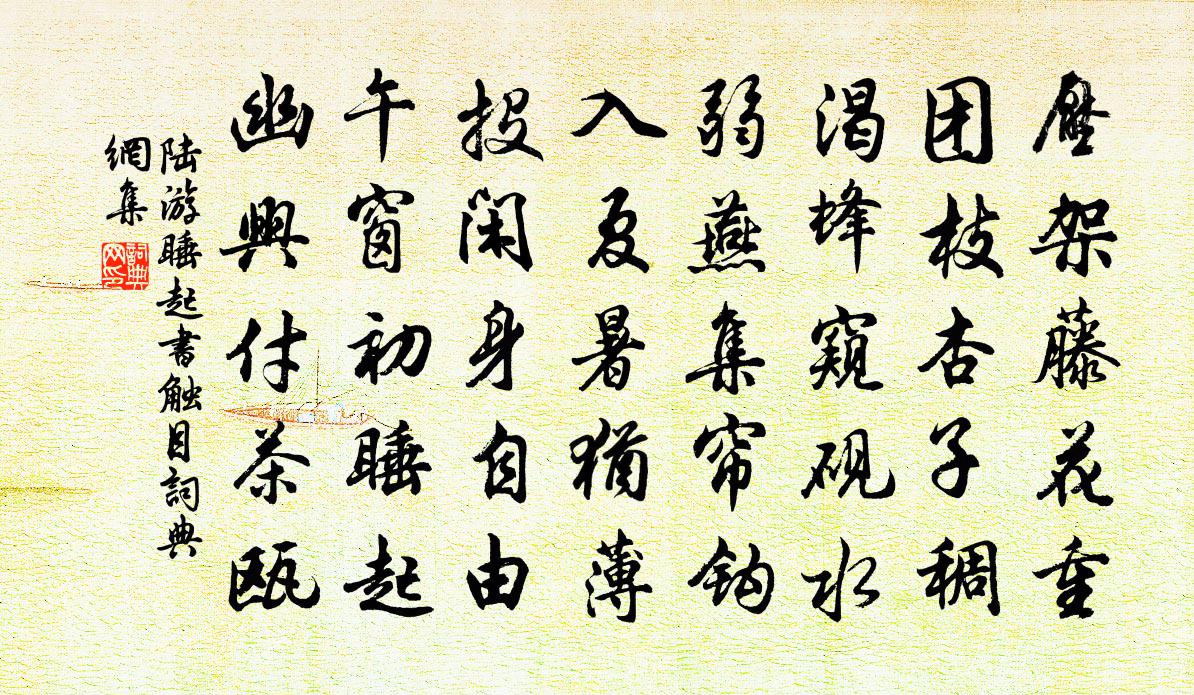 压架藤花重
团枝杏子稠
渴蜂窥砚水
弱燕集帘钩
入夏暑犹薄
投闲身自由
午窗初睡起
幽興付茶瓯
陆游睡起書触目詞典
網集
詞典
网印